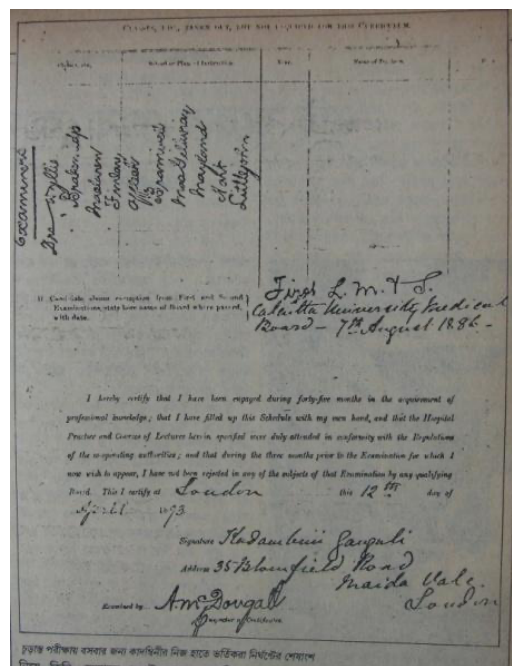 CLASSES, ETC., TAKEN OUT, BUT NOT REQUIRED FOR THIS CURRICULUM.
School or Place of Instruction.
Examiners
Drs Wyllie
Finlay
Maryland
Littlejohn
If Candidate claims exemption from First and Second
Examinations, state here name of Board where passed,
with date.
First L. M. & S.
Calcutta University Medical
Board - 7th August 1886.-
I hereby certify that I have been engaged during forty-five months in the acquirement of
professional knowledge; that I have filled up this Schedule with my own hand, and that the Hospital
Practice and Courses of Lectures herein specified were duly attended in conformity with the Regulations
of the co-operating authorities; and that during the three months prior to the Examination for which I
now wish to appear, I have not been rejected in any of the subjects of that Examination by any qualifying
Board. This I certify at London this 12th day of
April 1893
Signature Kadambini Ganguli
Address 35 Blomfield Road
Maida Vale.
London
Examined by A McDougall
Inspector of Certificates
চূড়ান্ত পরীক্ষায় বসবার জন্য কাদম্বিনীর নিজ হাতে ভর্তিকরা নির্ঘণ্টের শেষাংশ